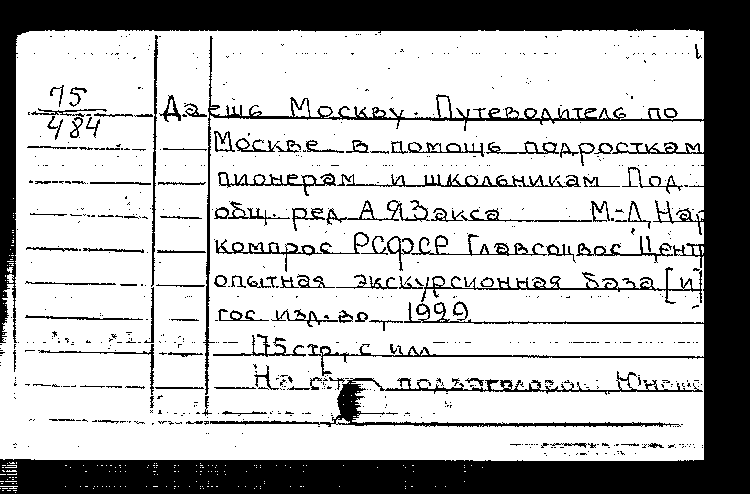 75
484
Даешь Москву. Путеводитель по
Москве в помощь подросткам
пионерам и школьникам Под
общ. ред А.Я.Закса М.-Л, Нар
компрос РСФСР Главсоцвос Центр
опытная экскурсионная база [и]
гос изд-во, 1929
175 стр., с илл.
На подзаголовок: Юноше